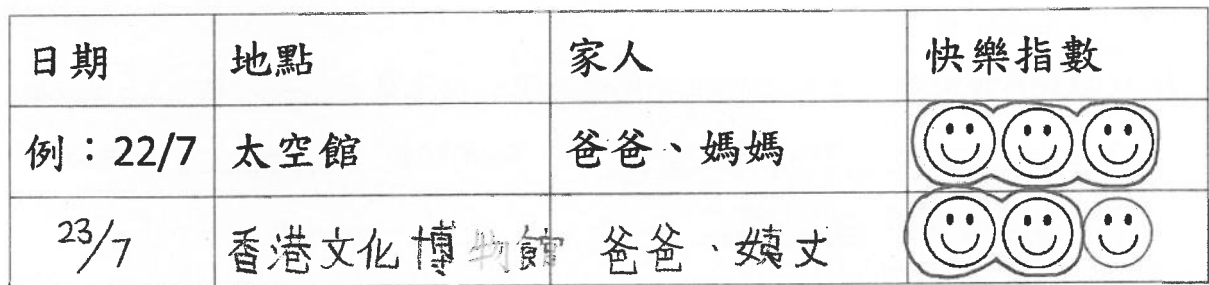 日期 地點 家人 快樂指數
例：22/7 太空館 爸爸、媽媽
23/7 香港文化博物館 爸爸、姨丈